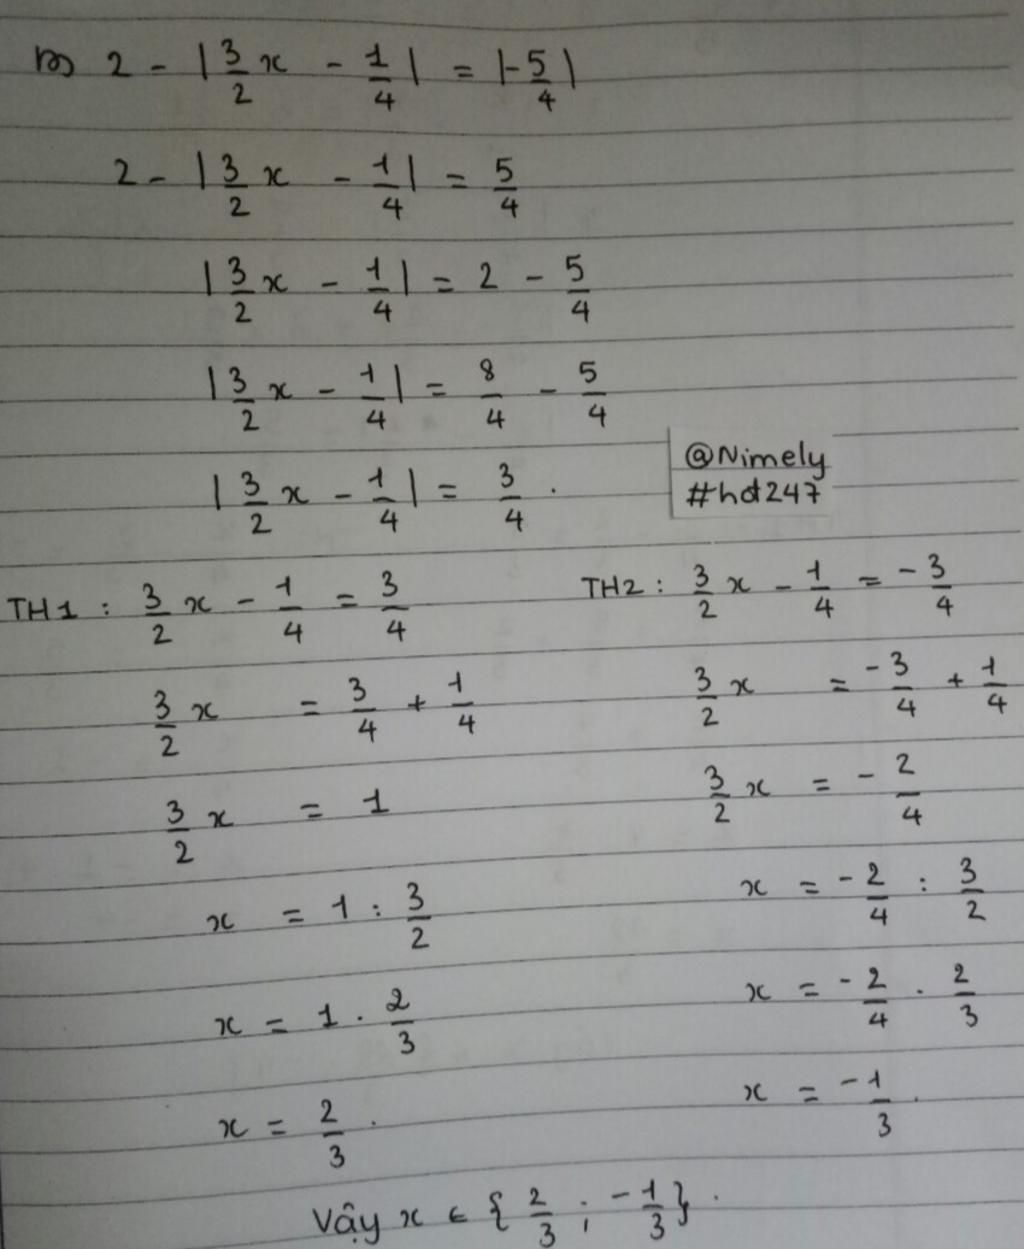 b) 2 - |3/2 x - 1/4| = |-5/4|
2 - |3/2 x - 1/4| = 5/4
|3/2 x - 1/4| = 2 - 5/4
|3/2 x - 1/4| = 8/4 - 5/4
|3/2 x - 1/4| = 3/4 .
@Nimely
#hd247
TH1 : 3/2 x - 1/4 = 3/4
3/2 x = 3/4 + 1/4
3/2 x = 1
x = 1 : 3/2
x = 1 . 2/3
x = 2/3 .
TH2 : 3/2 x - 1/4 = -3/4
3/2 x = -3/4 + 1/4
3/2 x = -2/4
x = -2/4 : 3/2
x = -2/4 . 2/3
x = -1/3 .
Vậy x ∈ {2/3 ; -1/3} .